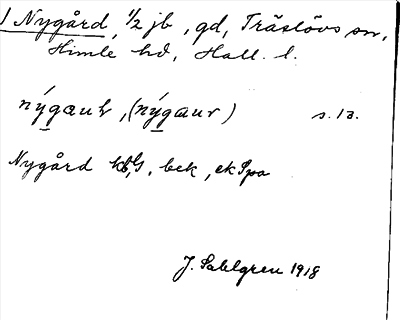 1 Nygård, 1/2 jb, gd, Träslövs sn,
Himle hd, Hall. l.
nýgaur, (nýgaur) s. la.
Nygård bek, ek Spa
J. Sahlgren 1918